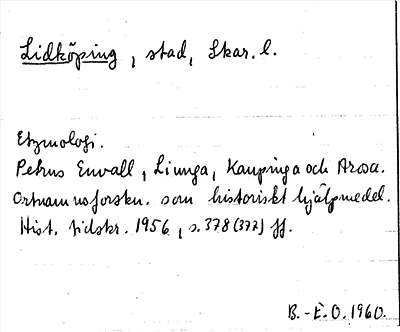 Lidköping, stad, Skar. l.
Etymologi.
Petrus Envall, Liunga, Kaupinga och Arosa.
Ortnamnsforskn. som historiskt hjälpmedel.
Hist. tidskr. 1956, s. 378 (377) ff.
B.-E.O. 1960.